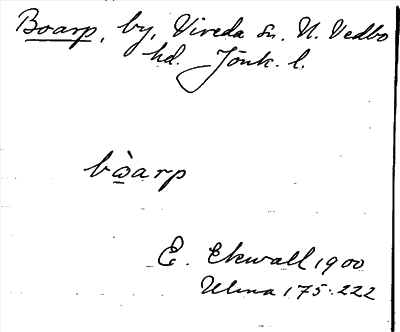 Boarp, by, Vireda sn. N. Vedbo
hd. Jönk. l.
bὼ̲arp
E. Ekwall 1900
Ulma 175:222